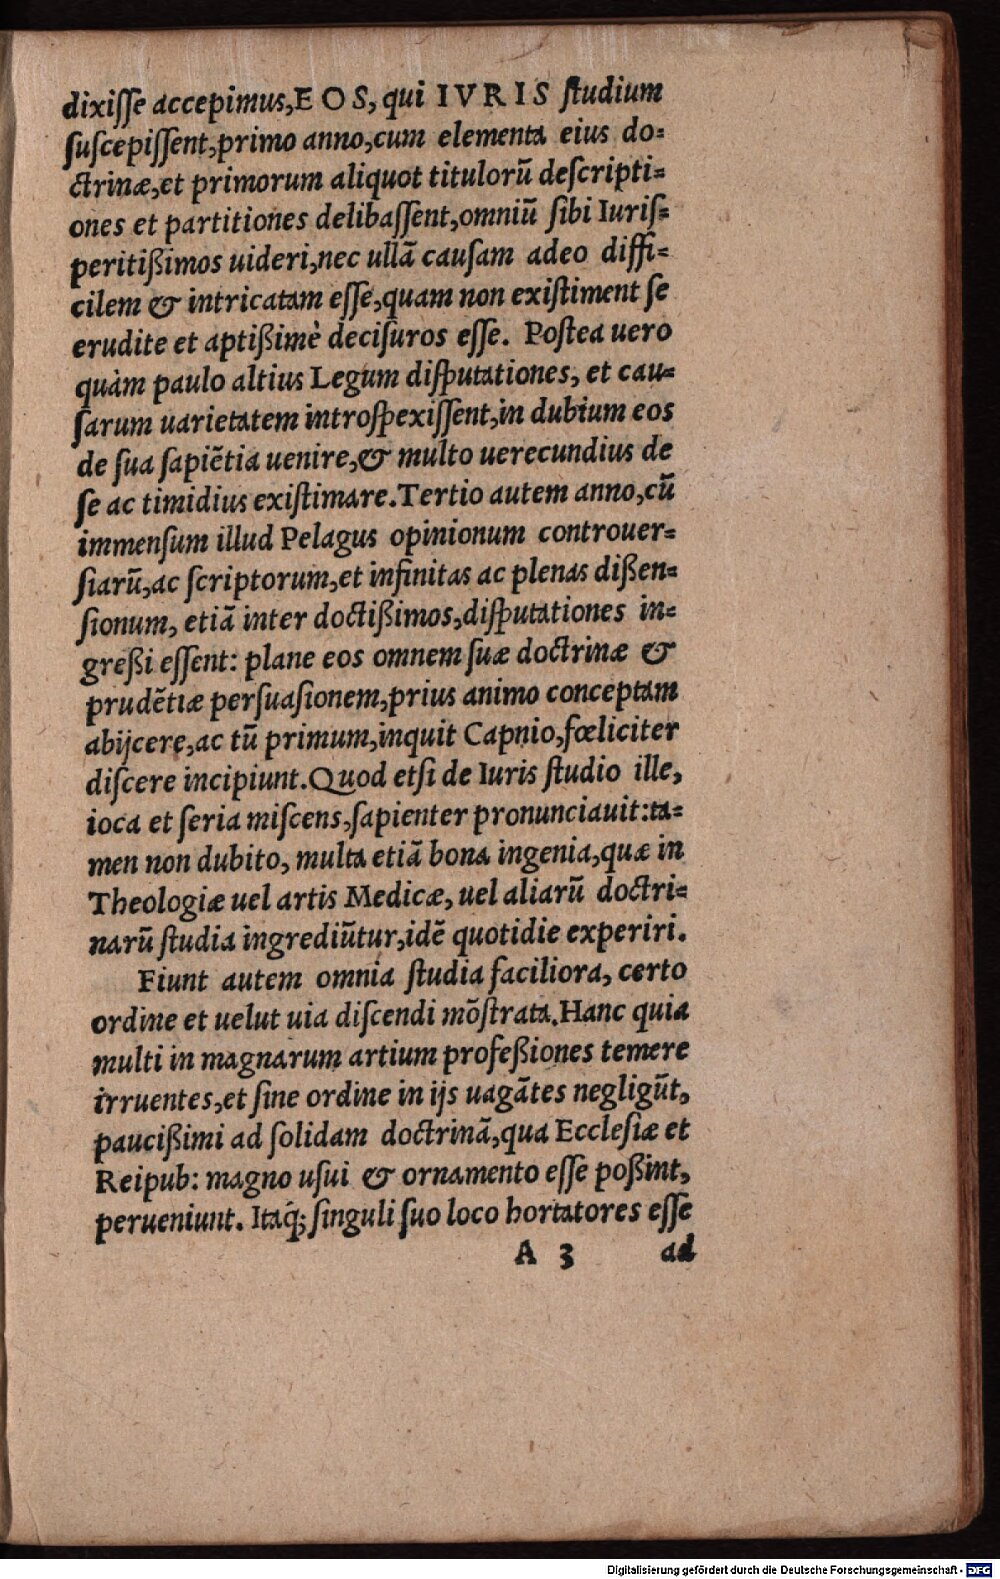 dixiſſe accepimus,E O S, qui I V R I S ſtudium
ſuſcepiſſent,primo anno,cum elementa eius do=
ctrinæ,et primorum aliquot titulorũ deſcripti=
ones et partitiones delibaſſent,omniũ ſibi Iuriſ=
peritißimos uideri,nec ullã cauſam adeo diffi=
cilem & intricatam eſſe,quam non exiſtiment ſe
erudite et aptißimè deciſuros eſſe. Poſtea uero
quàm paulo altius Legum diſputationes, et cau=
ſarum uarietatem introſpexiſſent,in dubium eos
de ſua ſapiẽtia uenire,& multo uerecundius de
ſe ac timidius exiſtimare.Tertio autem anno,cũ
immenſum illud Pelagus opinionum controuer=
ſiarũ,ac ſcriptorum,et infinitas ac plenas dißen=
ſionum, etiã inter doctißimos,diſputationes in=
greßi eſſent: plane eos omnem ſuæ doctrinæ &
prudẽtiæ perſuaſionem,prius animo conceptam
abijcere,ac tũ primum,inquit Capnio,fœliciter
diſcere incipiunt.Quod etſi de Iuris ſtudio ille,
ioca et ſeria miſcens,ſapienter pronunciauit:ta=
men non dubito, multa etiã bona ingenia,quæ in
Theologiæ uel artis Medicæ, uel aliarũ doctri=
narũ ſtudia ingrediũtur,idẽ quotidie experiri.
Fiunt autem omnia ſtudia faciliora, certo
ordine et uelut uia diſcendi mõſtrata.Hanc quia
multi in magnarum artium profeßiones temere
irruentes,et ſine ordine in ijs uagãtes negligũt,
paucißimi ad ſolidam doctrinã,qua Eccleſiæ et
Reipub: magno uſui & ornamento eſſe poßint,
perueniunt. Itaq́; ſinguli ſuo loco hortatores eſſe
A 3 ad
Digitalisierung gefördert durch die Deutsche Forschungsgemeinschaft - DFG